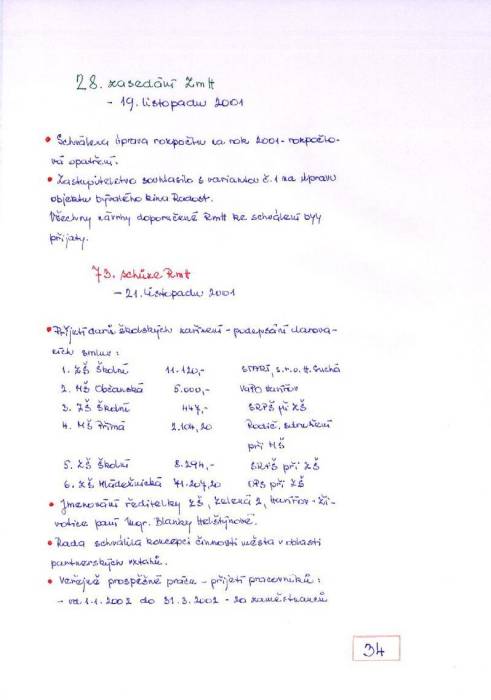 28. zasedání ZmH
- 19. listopadu 2001
• Schválena úprava rozpočtu na rok 2001 - rozpočto-
vá opatření.
• Zastupitelstvo souhlasilo s variantou č. 1 na úpravu
objektu bývalého kina Radost.
Všechny návrhy doporučené RmH ke schválení byly
přijaty.
73. schůze RmH
- 21. listopadu 2001
• Přijetí darů školských zařízení - podepsání darova-
cích smluv:
1. ZŠ Školní 11.120,- START, s.r.o. H. Suchá
2. MŠ Občanská 5.000,- VaPO Havířov
3. ZŠ Školní 447,- SRPŠ při ZŠ
4. MŠ Přímá 2.104,20 Rodič. sdružení
při MŠ
5. ZŠ Školní 8.294,- SRPŠ při ZŠ
6. ZŠ Mládežnická 71.207,20 SPŠ při ZŠ
• Jmenování ředitelky ZŠ, Zelená 2, Havířov - Ži-
votice paní Mgr. Blanky Helštýnové.
• Rada schválila koncepci činnosti města v oblasti
partnerských vztahů.
• Veřejně prospěšné práce - přijetí pracovníků:
- od 1.1.2002 do 31.3.2002 - 20 zaměstnanců
34